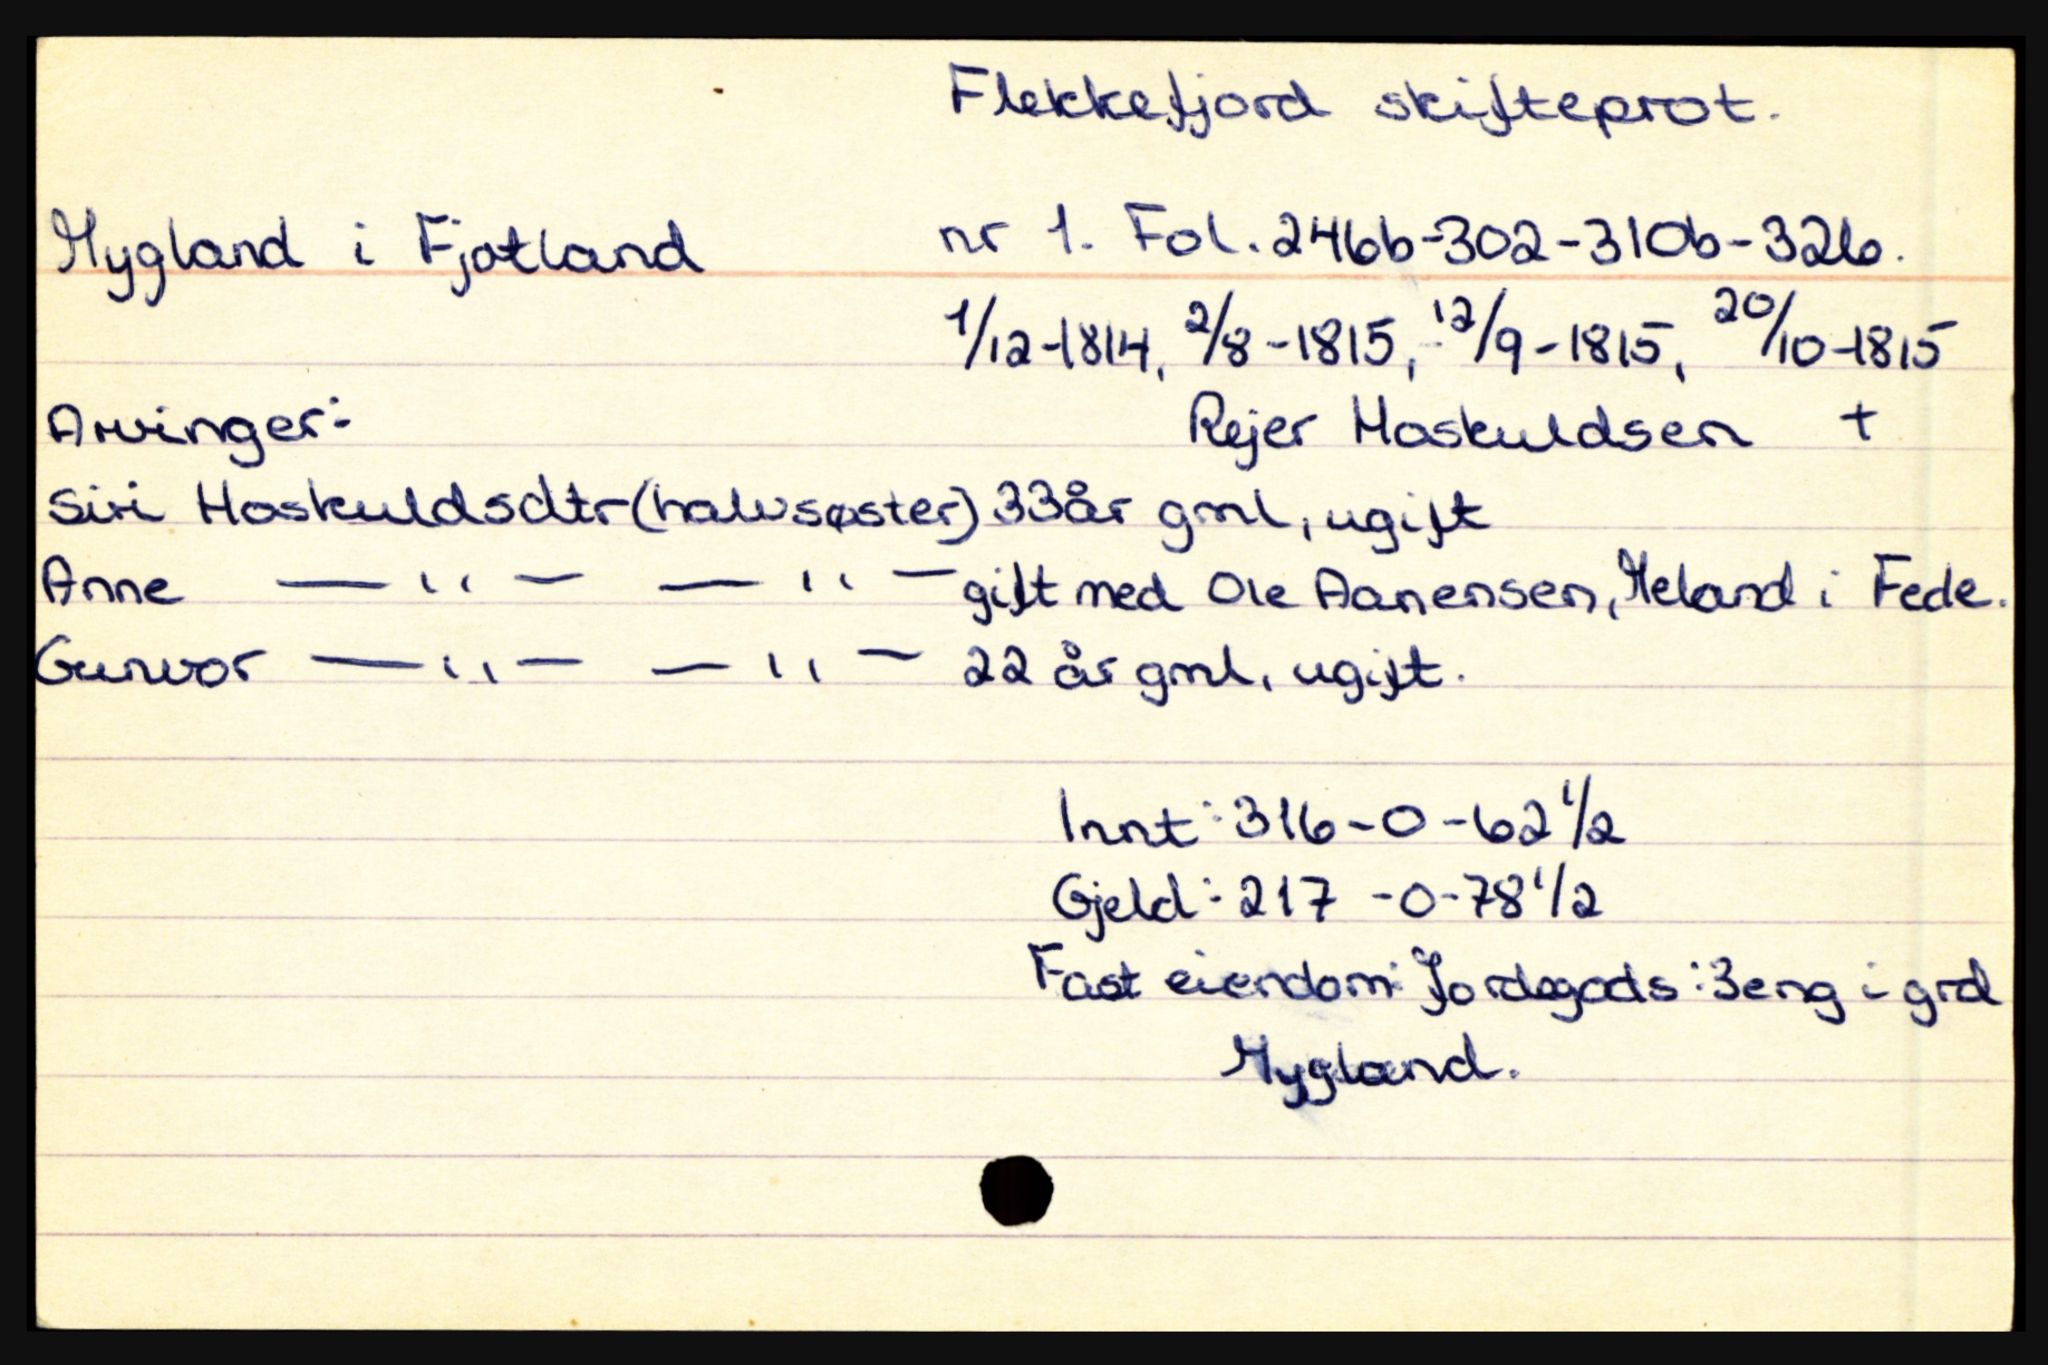 Flekkefjord skifteprot.
Mygland i Fjotland nr 1. Fol. 246b-302-310b-326.
1/12-1814, 2/8-1815, 12/9-1815, 20/10-1815
Arvinger: Rejer Hoskuldsen +
Siri Hoskuldsdtr (halvsøster) 33 år gml, ugift
Anne —''— —''— gift med Ole Aanensen, Meland i Fede.
Gunvor —''— —''— 22 år gml, ugift.
Innt: 316-0-62 1/2
Gjeld: 217-0-78 1/2
Fast eiendom: Jordegods: 3 eng i grd
Mygland.